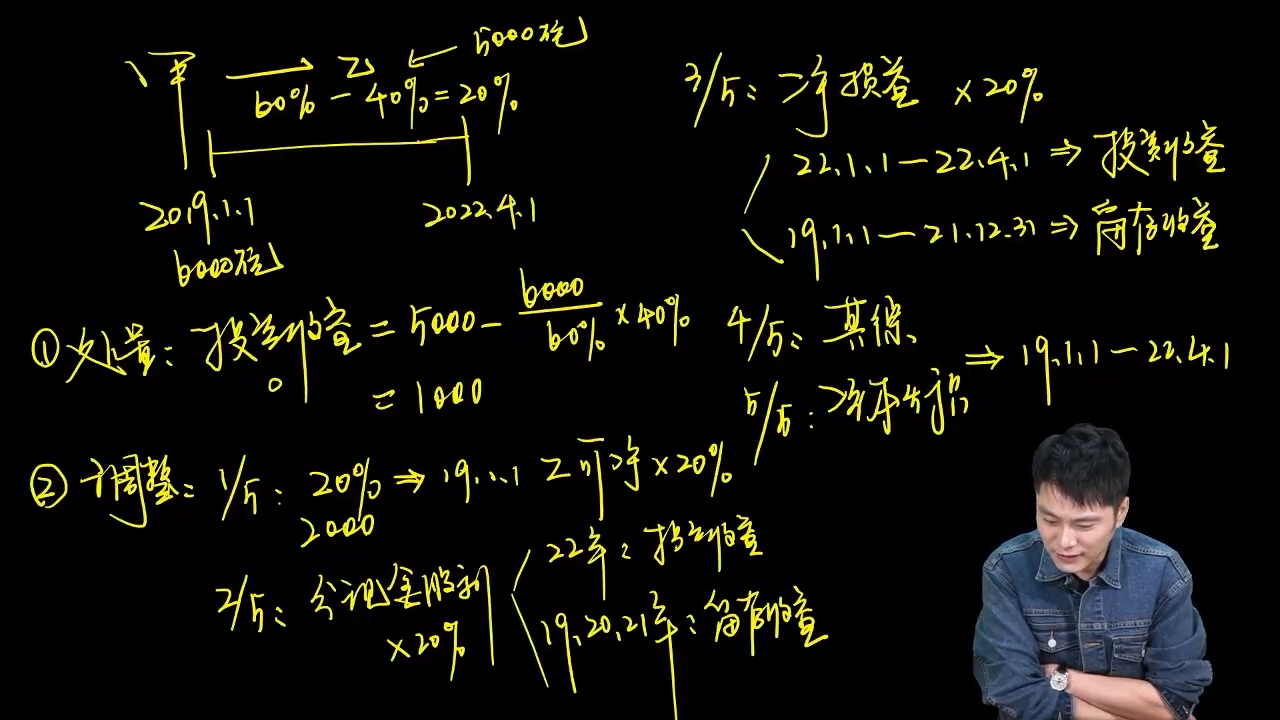 甲 → 乙 ← 5000万
60% - 40% = 20%
2019.1.1 2022.4.1
6000万
① 处置：投资收益 = 5000 - 6000/60% × 40%
= 1000
② 调整：1/5：20% ⇒ 19.1.1 乙可净 × 20%
2000
2/5：分现金股利
× 20%
22年：投资收益
19,20,21年：留存收益
3/5：净损益 × 20%
22.1.1 — 22.4.1 ⇒ 投资收益
19.1.1 — 21.12.31 ⇒ 留存收益
4/5：其综
⇒ 19.1.1 — 22.4.1
5/5：